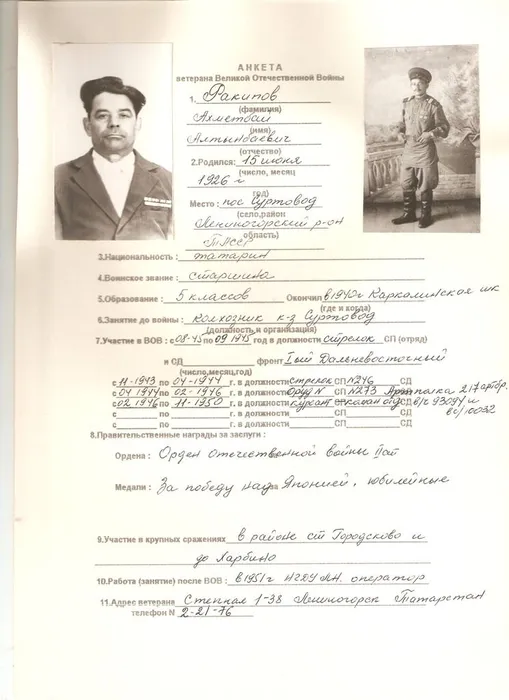 АНКЕТА
ветерана Великой Отечественной Войны
1. Ракипов
(фамилия)
Ахметбай
(имя)
Алтынбаевич
(отчество)
2.Родился: 15 июня
(число, месяц
1926 г
год)
Место : пос Суртовод
(село,район
Лениногорский р-он
область)
ТАССР
3.Национальность : татарин
4.Воинское звание : старшина
5.Образование : 5 классов Окончил в 1940г Каркалинская шк
(где и когда)
6.Занятие до войны : колхозник к-з Суртовод
(должность и организация)
7.Участие в ВОВ : с 08-45 по 09 1945 год в должности стрелок СП (отряд)
и СД фронт Iый Дальневосточный
(число,месяц,год)
с 11-1943 по 04-1944 г. в должности стрелок СП N246 СД
с 04 1944 по 02-1946 г. в должности СП N273 полка 217 артбр.
с 02 1946 по 11-1950 г. в должности курсант СД в/ч 93094 и
в/ч 10032
с по г. в должности СП СД
с по г. в должности СП СД
8.Правительственные награды за заслуги :
Ордена : Орден Отечественной войны IIой
Медали : За победу над Японией, юбилейные
9.Участие в крупных сражениях в районе ст Городсково и
до Харбино
10.Работа (занятие) после ВОВ : в 1951г НГДУ Л.Н. оператор
11.Адрес ветерана Степная 1-38 Лениногорск Татарстан
телефон N 2-21-76